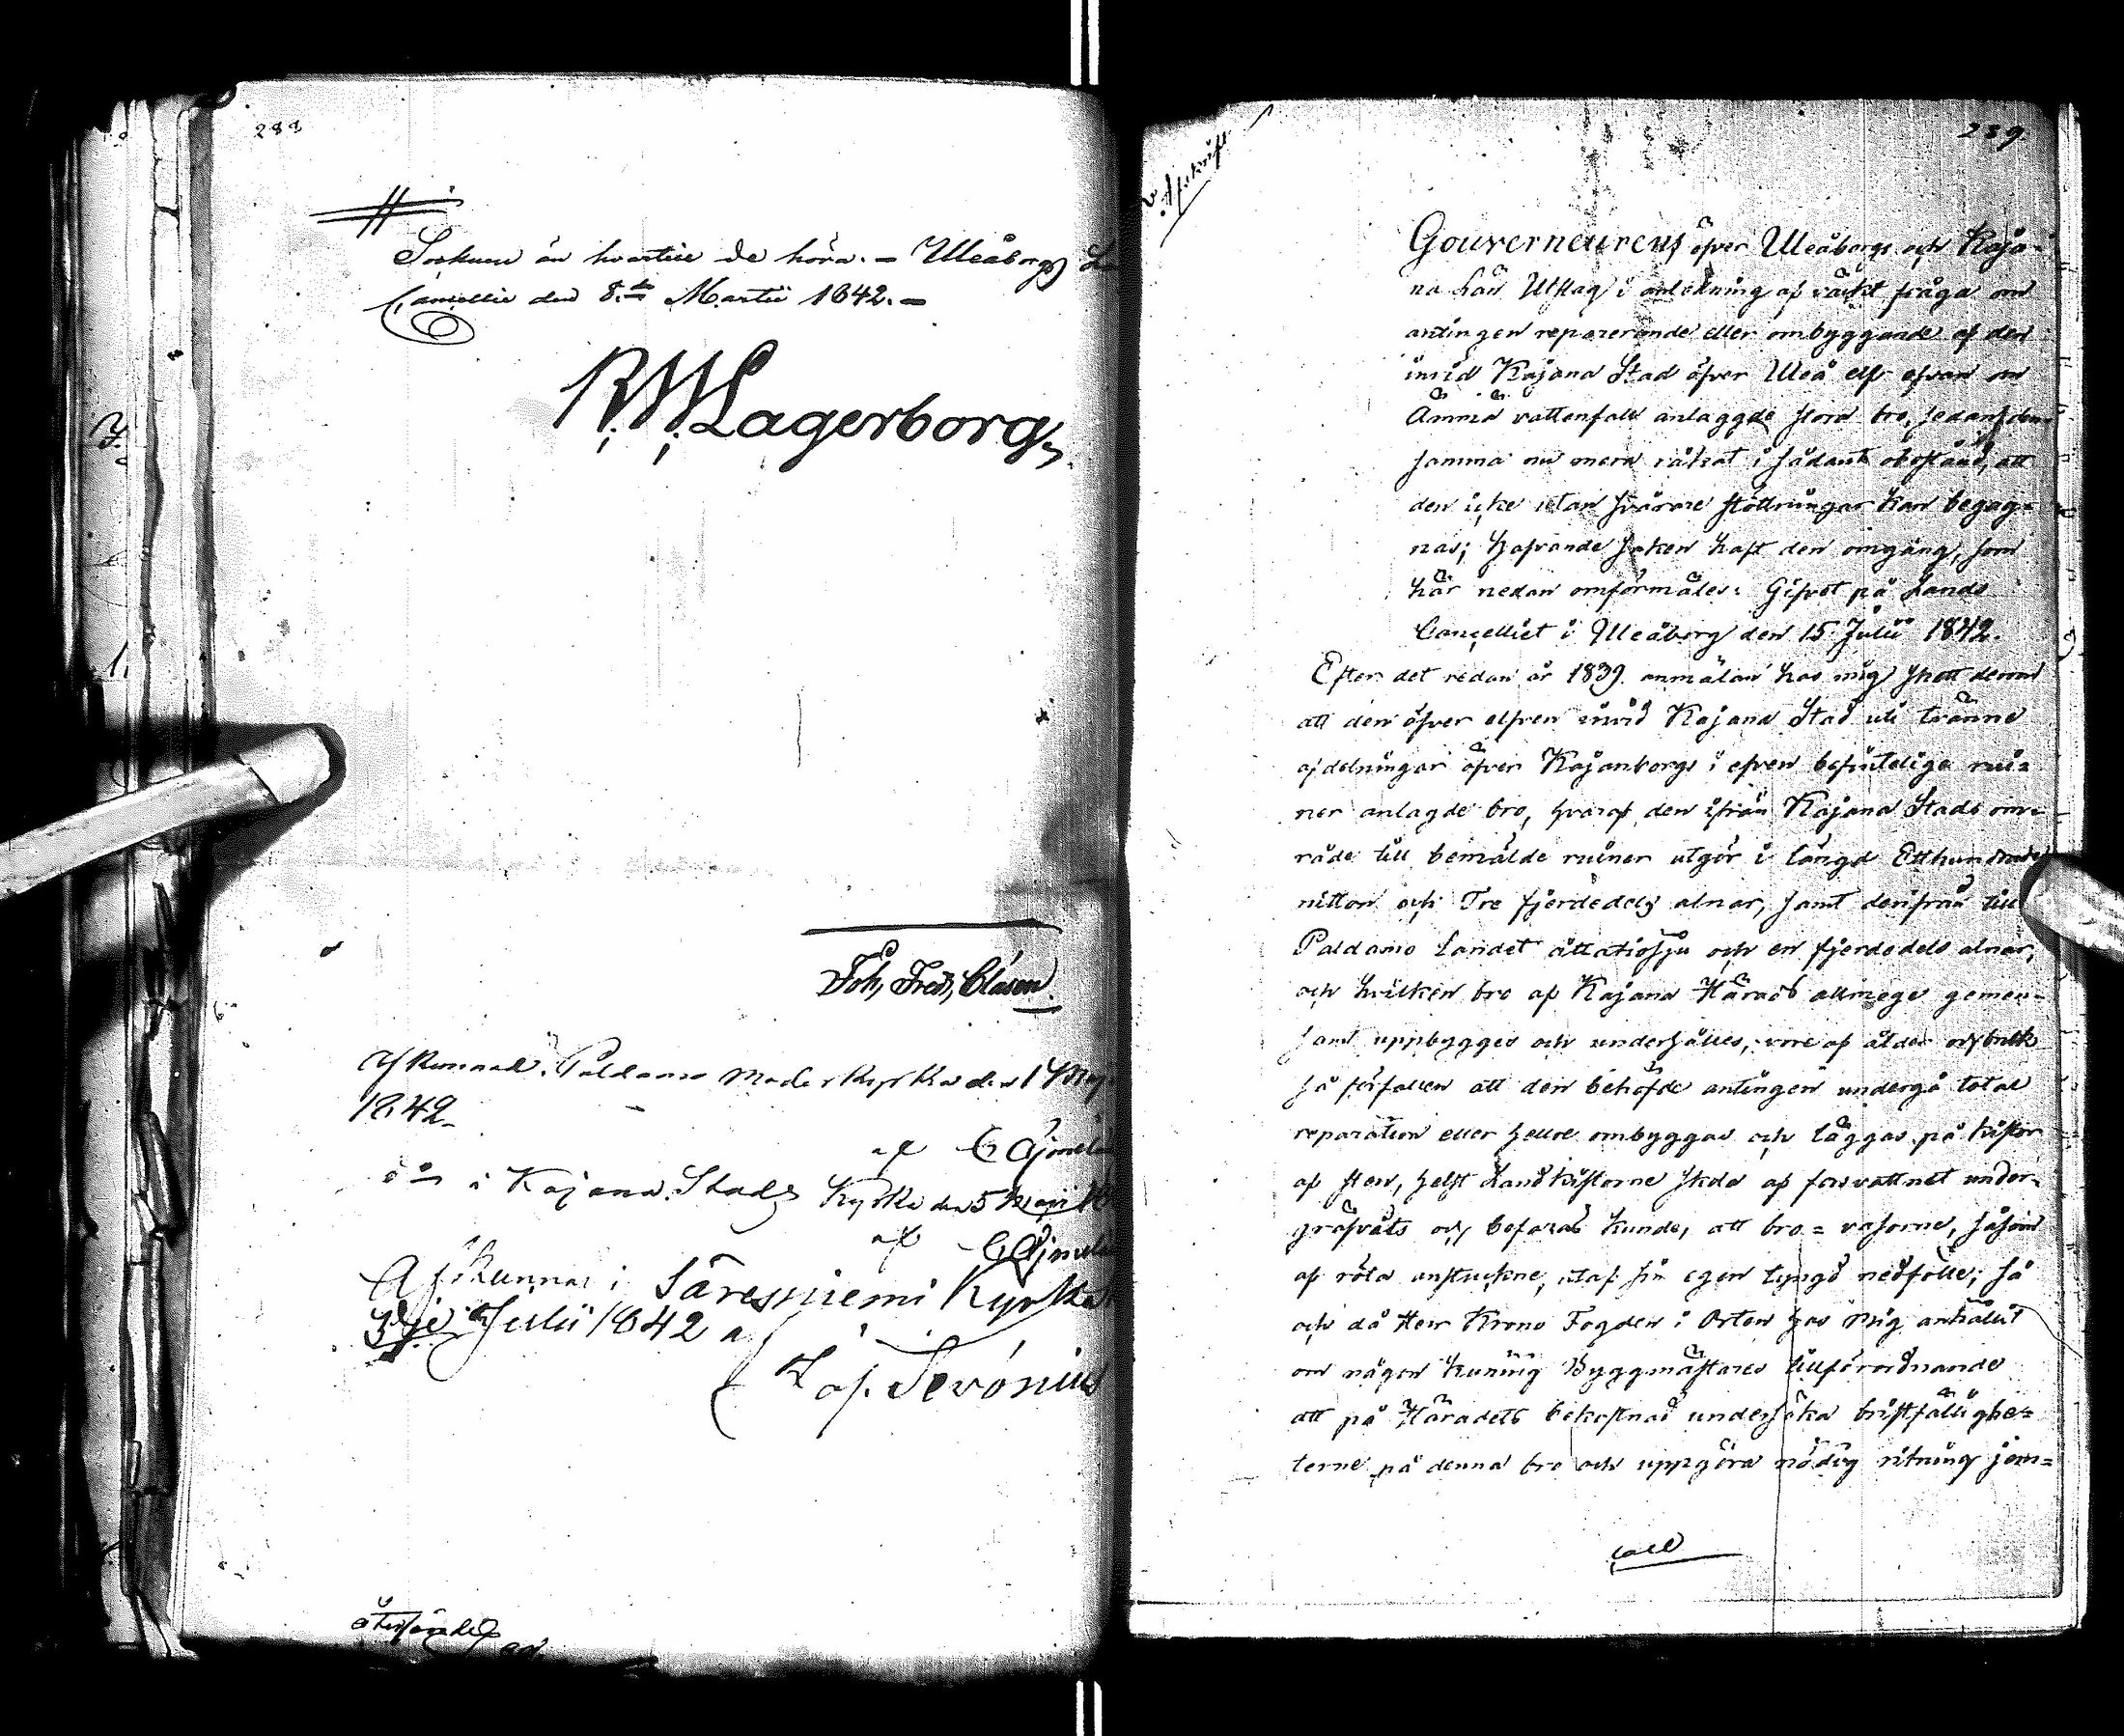 288
Socknen än hvartill de höra. - Uleåborgs
Cancellie den 8.de Martii 1842. -
R. W. Lagerborg
Joh, Fred, Clasen
Afkunnad i Paldamo Moderkyrka den 1 Maj
1842
af
i Kajana Stads Kyrka den 5 Maji
af
Afkunnas i Säresniemi Kyrka
3dje Julii 1842 a
återsändes
239
Afskrift
Gouverneurens öfver Uleåborgs och Kaja-
na Län Utslag i anledning af väckt fråga om
antingen reparerande eller ombyggande af den
invid Kajana Stad öfver Uleå elf ofvan om
Ämmä vattenfall anlaggde stora bro, sedan den-
samma nu mera råkat i sådant obestånd, att
den icke utan svårare stöttningar kan begag-
nas; hafvande saken haft den omgång, som
här nedan omförmäles: Gifvet på Lands
Cancelliet i Uleåborg den 15 Julii 1842.
Efter det redan år 1839 anmälan hos mig skett derom
att den öfver elfven invid Kajana Stad uti tvänne
afdelningar öfver Kajaneborgs i elfven befintelige rui-
ner anlagde bro, hvaraf den ifrån Kajana Stads om-
råde till bemälde ruiner utgör i längd Etthundrade
nitton och Tre fjerdedels alnar, samt derifrån till
Paldamo Landet åttatiosju och en fjerdedels alnar,
och hvilken bro af Kajana Härads allmoge gemen-
samt uppbygges och underhålles, vore af ålder och bruk
så förfallen att den behöfde antingen undergå total
reparation eller hellre ombyggas och läggas på kistor
af sten, helst Landkistorne skola af forsvattnet under-
gräfvats och befaras kunde, att bro=vasorne, såsom
af röta anstuckne, utaf sin egen tyngd nedfölle; så
och då Herr Krono Fogden i Orten hos mig anhållit
om någon kunnig Byggmästares tillförordnande
att på Häradets bekostnad undersöka bristfällighe-
terne på denna bro och uppgöra nödig ritning jem-